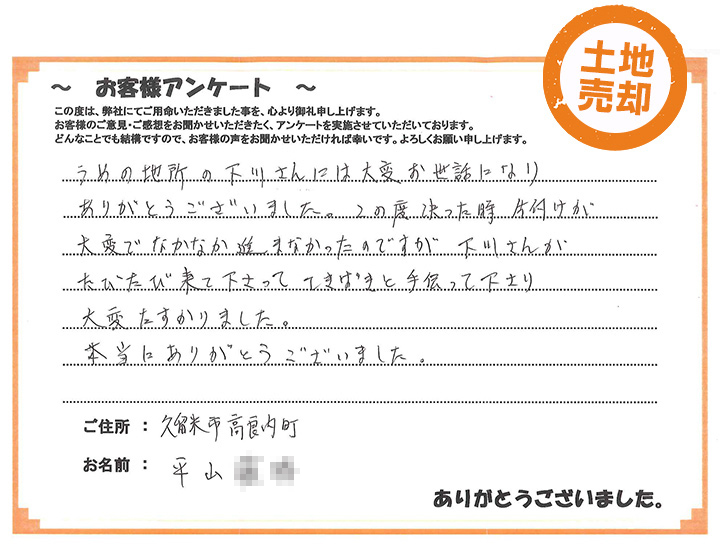 土地
売却
～ お客様アンケート ～
この度は、弊社にてご用命いただきました事を、心より御礼申し上げます。
お客様のご意見・ご感想をお聞かせいただきたく、アンケートを実施させていただいております。
どんなことでも結構ですので、お客様の声をお聞かせいただければ幸いです。よろしくお願い申し上げます。
うめの地所の下川さんには大変お世話になり
ありがとうございました。この度決った時片付けが
大変でなかなか進まなかったのですが下川さんが
たびたび来て下さっててきぱきと手伝って下さり
大変たすかりました。
本当にありがとうございました。
ご住所 ： 久留米市高良内町
お名前 ： 平山
ありがとうございました。